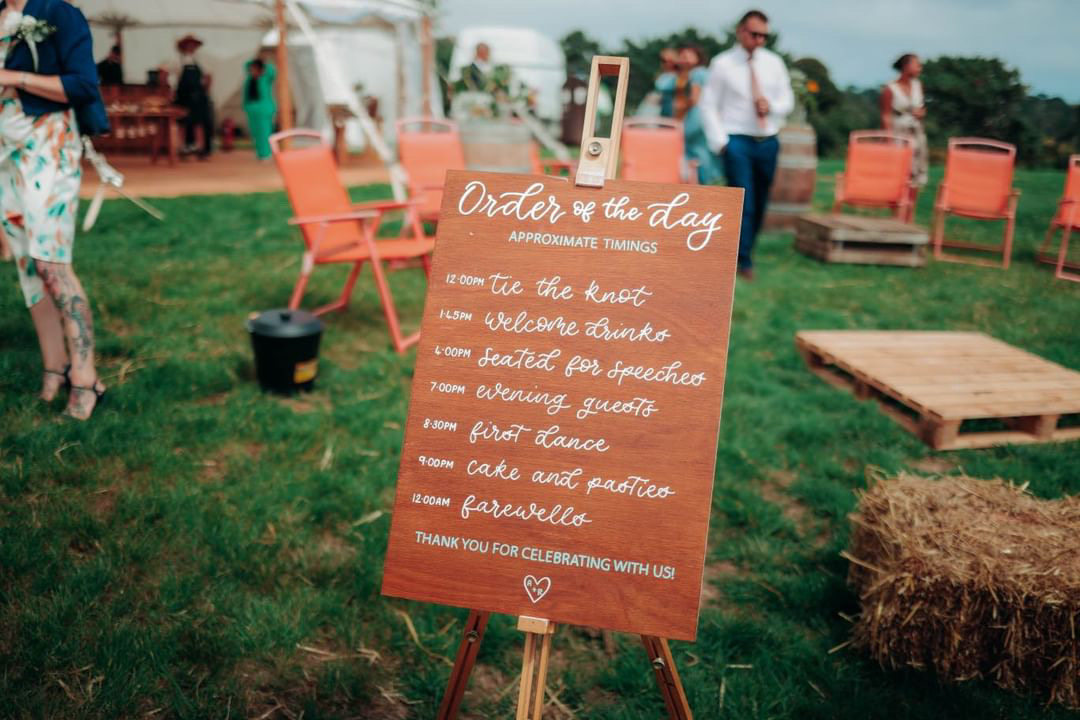 Order of the day
APPROXIMATE TIMINGS
12:00PM tie the knot
1:45PM welcome drinks
4:00PM seated for speeches
7:00PM evening guests
8:30PM first dance
9:00PM cake and pasties
12:00AM farewells
THANK YOU FOR CELEBRATING WITH US!
A+R